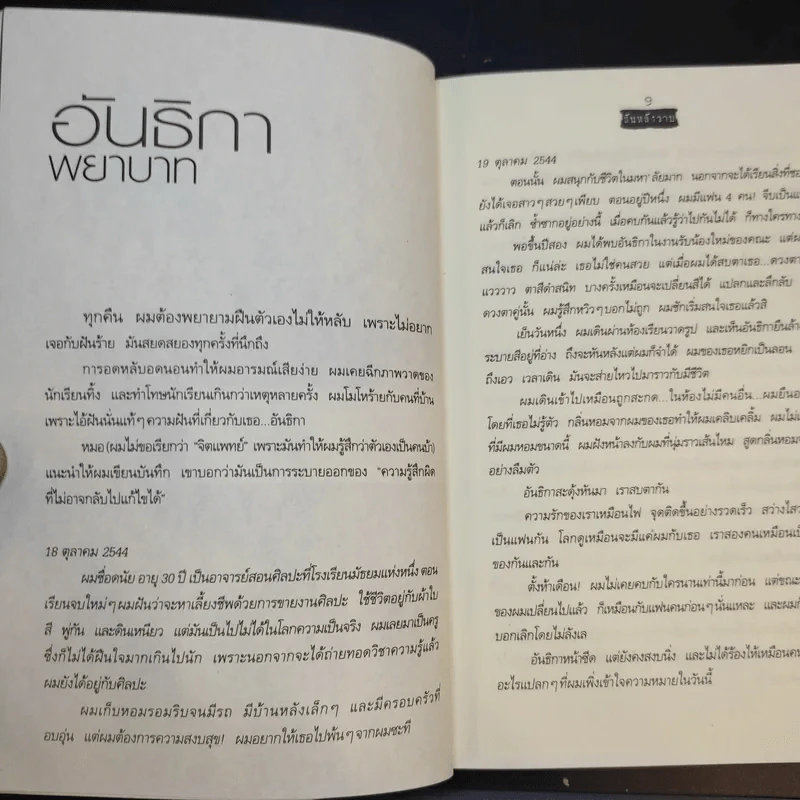 อันธิกา
พยาบาท
ทุกคืน ผมต้องพยายามฝืนตัวเองไม่ให้หลับ เพราะไม่อยาก
เจอกับฝันร้าย มันสยดสยองทุกครั้งที่นึกถึง
การอดหลับอดนอนทำให้ผมอารมณ์เสียง่าย ผมเคยฉีกภาพวาดของ
นักเรียนทิ้ง และทำโทษนักเรียนเกินกว่าเหตุหลายครั้ง ผมโมโหร้ายกับคนที่บ้าน
เพราะไอ้ฝันนั่นแท้ๆ ความฝันที่เกี่ยวกับเธอ...อันธิกา
หมอ (ผมไม่ขอเรียกว่า "จิตแพทย์" เพราะมันทำให้ผมรู้สึกว่าตัวเองเป็นคนบ้า)
แนะนำให้ผมเขียนบันทึก เขาบอกว่ามันเป็นการระบายออกของ "ความรู้สึกผิด
ที่ไม่อาจกลับไปแก้ไขได้"
18 ตุลาคม 2544
ผมชื่อดนัย อายุ 30 ปี เป็นอาจารย์สอนศิลปะที่โรงเรียนมัธยมแห่งหนึ่ง ตอน
เรียนจบใหม่ๆ ผมฝันว่าจะหาเลี้ยงชีพด้วยการขายงานศิลปะ ใช้ชีวิตอยู่กับผ้าใบ
สี พู่กัน และดินเหนียว แต่มันเป็นไปไม่ได้ในโลกความเป็นจริง ผมเลยมาเป็นครู
ซึ่งก็ไม่ได้ฝืนใจมากเกินไปนัก เพราะนอกจากจะได้ถ่ายทอดวิชาความรู้แล้ว
ผมยังได้อยู่กับศิลปะ
ผมเก็บหอมรอมริบจนมีรถ มีบ้านหลังเล็กๆ และมีครอบครัวที่
อบอุ่น แต่ผมต้องการความสงบสุข! ผมอยากให้เธอไปพ้นๆ จากผมซะที
9
วันหลังวาน
19 ตุลาคม 2544
ตอนนั้น ผมสนุกกับชีวิตในมหา'ลัยมาก นอกจากจะได้เรียนสิ่งที่ชอบ
ยังได้เจอสาวๆ สวยๆ เพียบ ตอนอยู่ปีหนึ่ง ผมมีแฟน 4 คน! จีบเป็นแ
แล้วก็เลิก ซ้ำซากอยู่อย่างนี้ เมื่อคบกันแล้วรู้ว่าไปกันไม่ได้ ก็ทางใครทาง
พอขึ้นปีสอง ผมได้พบอันธิกาในงานรับน้องใหม่ของคณะ แต่ผ
สนใจเธอ ก็แน่ล่ะ เธอไม่ใช่คนสวย แต่เมื่อผมได้สบตาเธอ...ดวงตา
แวววาว ตาสีดำสนิท บางครั้งเหมือนจะเปลี่ยนสีได้ แปลกและลึกลับ
ดวงตาคู่นั้น ผมรู้สึกหวิวๆ บอกไม่ถูก ผมชักเริ่มสนใจเธอแล้วสิ
เย็นวันหนึ่ง ผมเดินผ่านห้องเรียนวาดรูป และเห็นอันธิกายืนล้าง
ระบายสีอยู่ที่อ่าง ถึงจะหันหลังแต่ผมก็จำได้ ผมของเธอหยิกเป็นลอน
ถึงเอว เวลาเดิน มันจะส่ายไหวไปมาราวกับมีชีวิต
ผมเดินเข้าไปเหมือนถูกสะกด...ในห้องไม่มีคนอื่น...ผมยืนอ
โดยที่เธอไม่รู้ตัว กลิ่นหอมจากผมของเธอทำให้ผมเคลิบเคลิ้ม ผมไม่เ
ที่มีผมหอมขนาดนี้ ผมฝังหน้าลงกับผมที่นุ่มราวเส้นไหม สูดกลิ่นหอม
อย่างลืมตัว
อันธิกาสะดุ้งหันมา เราสบตากัน
ความรักของเราเหมือนไฟ จุดติดขึ้นอย่างรวดเร็ว สว่างไสว
เป็นแฟนกัน โลกดูเหมือนจะมีแค่ผมกับเธอ เราสองคนเหมือนเป็
ของกันและกัน
ตั้งห้าเดือน! ผมไม่เคยคบกับใครนานเท่านี้มาก่อน แต่ขณะ
ของผมเปลี่ยนไปแล้ว ก็เหมือนกับแฟนคนก่อนๆ นั่นแหละ และผมก็
บอกเลิกโดยไม่ลังเล
อันธิกาหน้าซีด แต่ยังคงสงบนิ่ง และไม่ได้ร้องไห้เหมือนคน
อะไรแปลกๆ ที่ผมเพิ่งเข้าใจความหมายในวันนี้